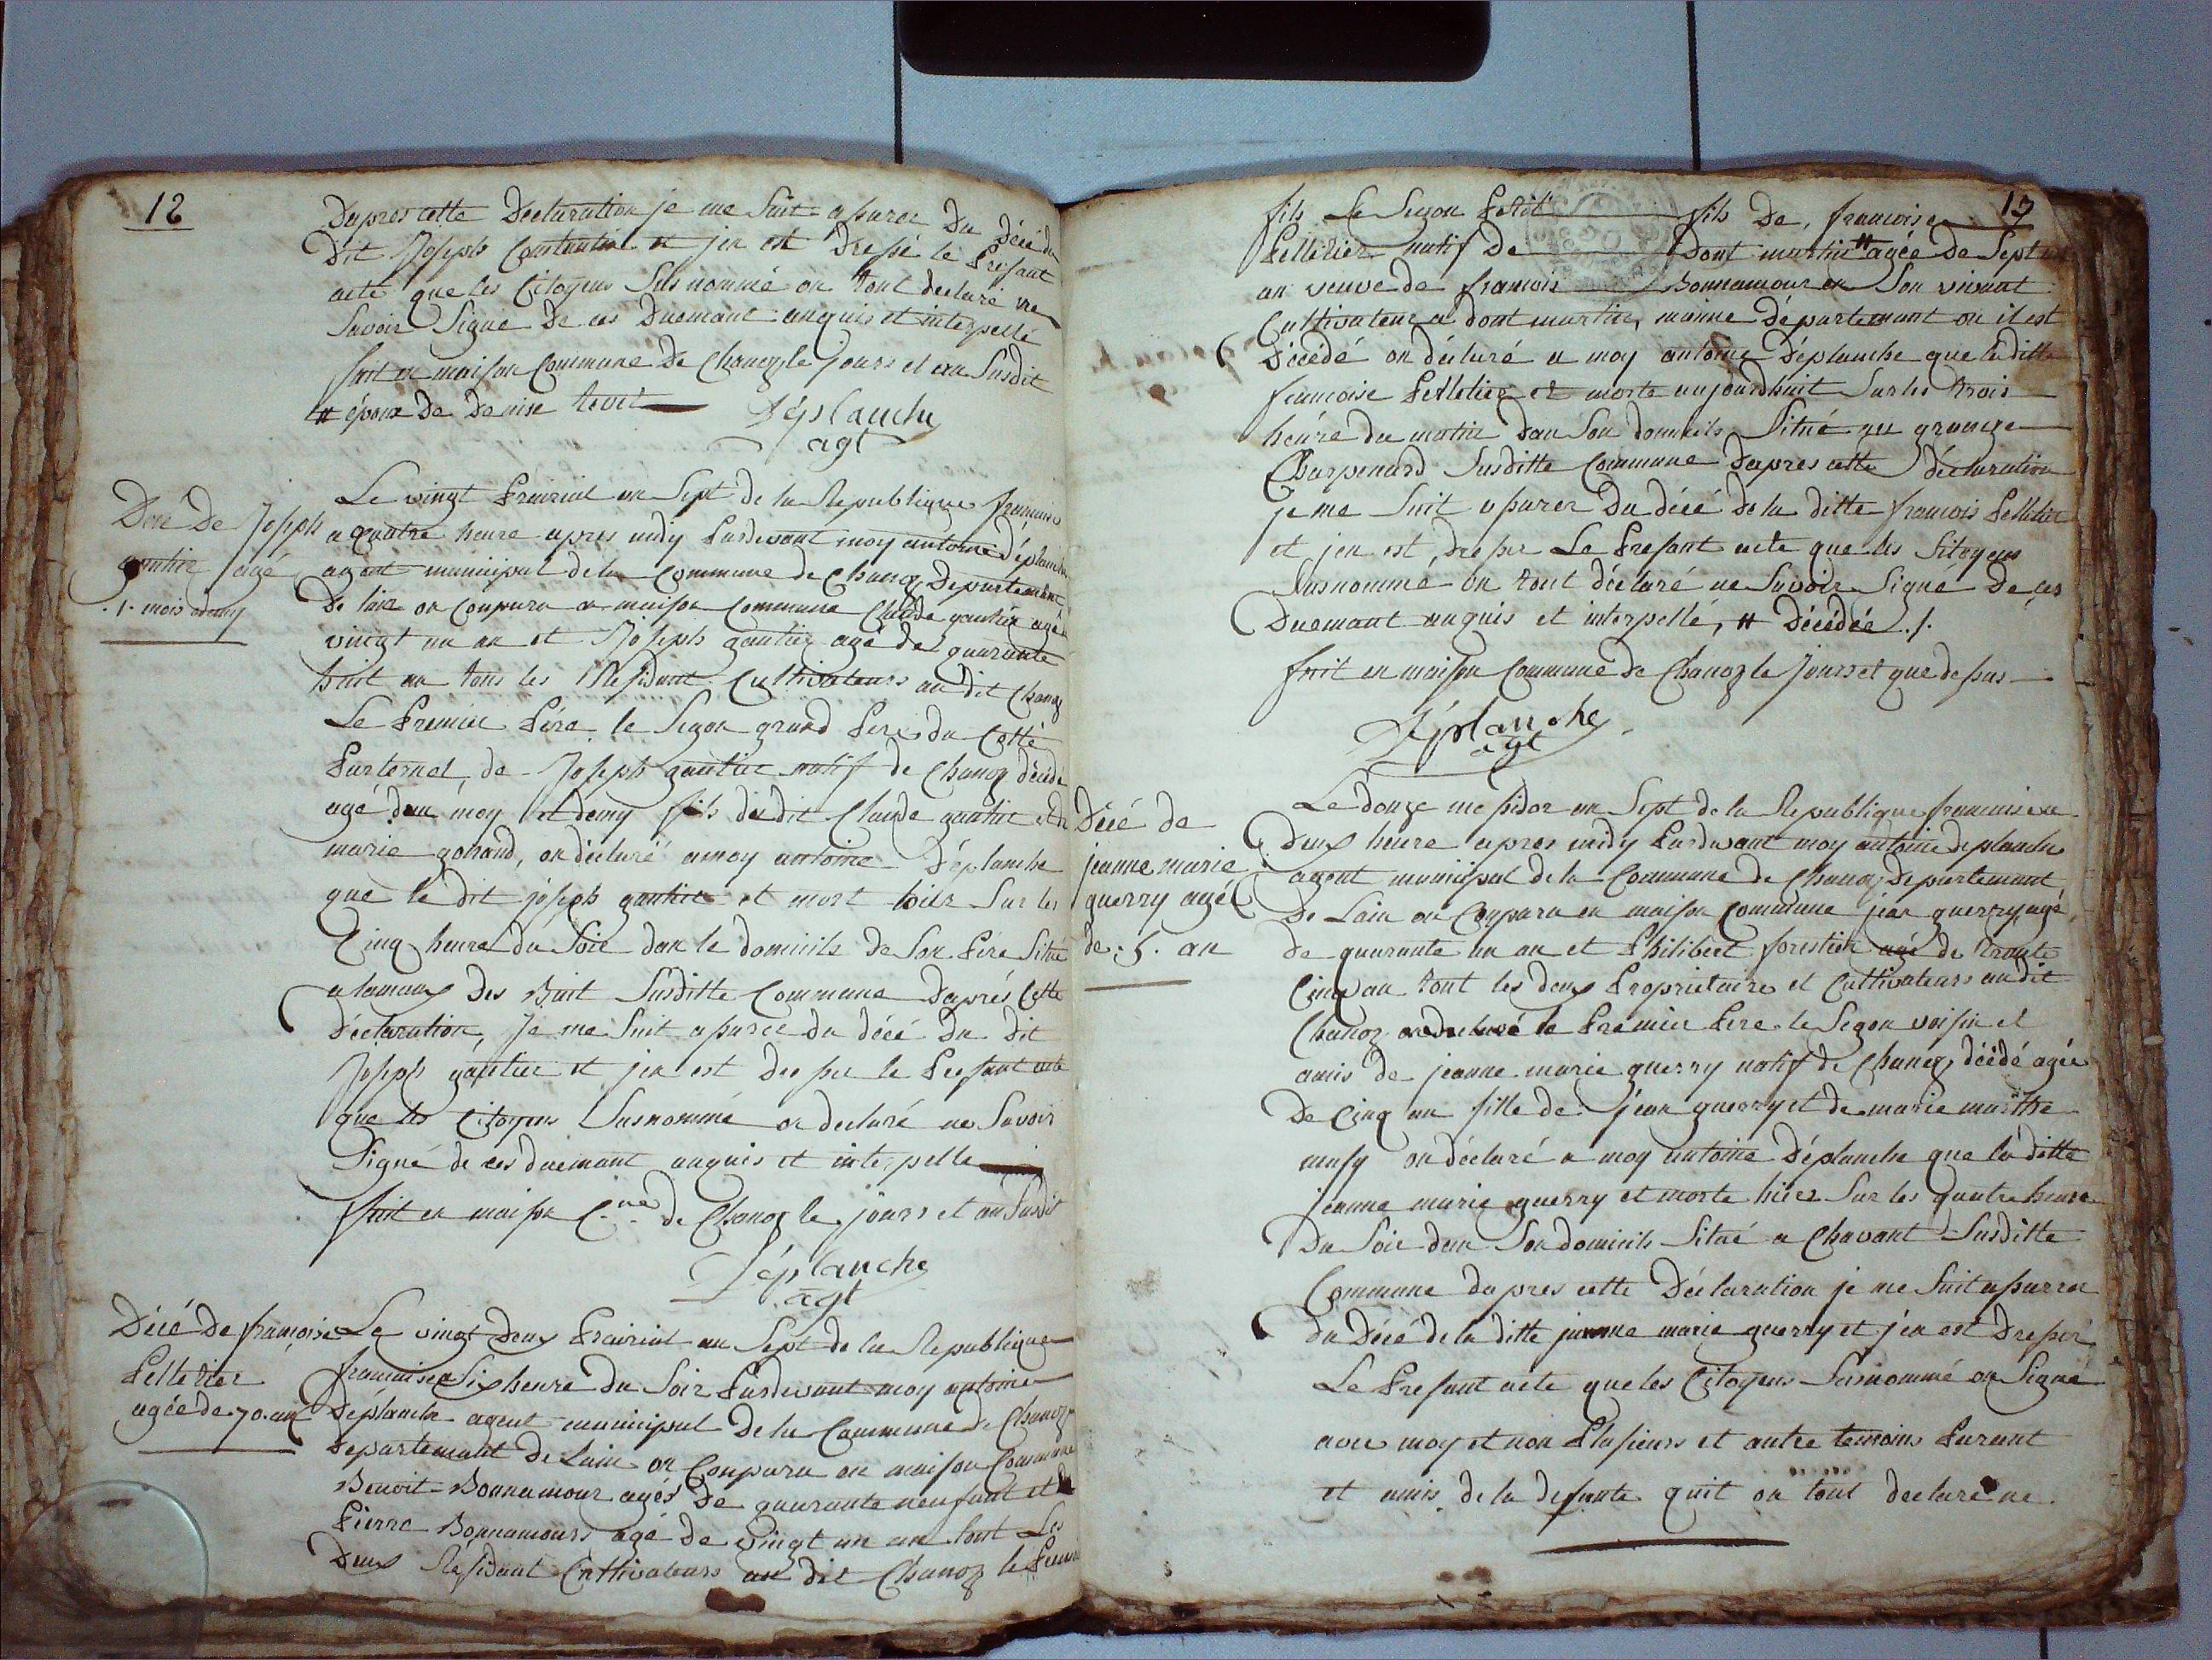 12
Dapres cette Declaration je me Suit aparer Du Décé du
Dit Joseph Constantin et jen est Dressé le Present
acte que les Citoyens Susnommé on tout declaré ne
Savoir Signe De ces Duemant anquis et interpellé
fait en maison Commune De Chanoz le jours et an Susdit
# époux De Denise Revet
Déplanche
agt
Décé De Joseph
gautier agé
.1. mois demy
Le vingt Prairial an Sept de la Republique francaise
a quatre heure apres midy Pardevant moy antoine Déplanche
agent municipal de la Commune de Chanoz Departement
De lain on Conparu en maison Commune Claude gautier agé de
vingt un an et Joseph gautier agé de quarante
huit an tous les Residant Cultivateurs au dit Chanoz
Le Premier Pére le Segon grand Pere du Cotté
Paternel, de Joseph gautier natif de Chanoz décédé
agé dun moy et demy fils du dit Claude gautier et de
marie gonand, on déclaré a moy antoine Déplanche
que le dit joseph gautier et mort hier Sur les
Cinq heure du Soir dan le domicils de Son Pére Situé
a lamaux Des Buit Susditte Commune Daprés Cette
déclaration, Je me Suit aparer du décé Du Dit
Joseph gautier et jen est dresser le Present acte
que les Citoyens Susnommé on declaré ne Savoir
Signé de ces duemant anquis et interpelle
fait en maison C.ne de Chanoz le jours et an Susdit
Déplanche
agt
Décé De francoise
Pelletier
agée de 70. an
Le vingt Deux Prairial an Sept de la Republique
francaise a Six heure Du Soir Pardevant moy antoine
Déplanche agent municipal De la Commune De Chanoz
Departemant De Lain on Conparu en maison Commune
Benoit Bonnamour agés De quarante neuf ant et de
Pierre Bonnamours agé de vingt un an tout Les
Deux Résidant Cultivateurs au dit Chanoz le Premier
13
fils Le Segon Petit fils De, francoise
Pelletier natif de Dont martin # agée De Sept
an veuve de francois Bonnamour en Son vivant
Cultivateur a dont martin, maime Départemant ou il est
Décédé on déclaré a moy antoine Déplanche que la ditte
francoise Pelletier et morte aujourdhuit Sur les trois
heure du matin dan Son domicils Situé au grange
Charpenard Susditte Commune Dapres cette déclaration
je me Suit aparer Du décé De la ditte francois Pelletier
et jen est dresser Le Present acte que les Citoyens
Susnommé on tout déclaré ne Savoir Signé De ces
Duemant anquis et interpellé, # Décédée ./.
fait en maison Commune de Chanoz le Jours et que dessus
Déplanche
agt
Décé de
jeanne marie
guerry agé
de .5. an
Le douze messidor an Sept de la Republique francaise a
Deux heure apres midy Pardevant moy antoine Deplanche
agent municipal de la Commune de Chanoz Departement
De Lain on Conparu en maison Commune jean guerry agé
de quarante un an et Philibert forestier agé de trante
Cinq an tout les deux Proprietaire et Cultivateurs audit
Chanoz on declaré le Premier Pere le Segon voisin et
amis de jeanne marie guerry natif de Chanoz décédé agée
De Cinq an fille de jean guerry et de marie marthe
on déclaré a moy antoine Déplanche que la ditte
jeanne marie guerry et morte hiere Sur les quatre heure
Du Soir dan Son domicils Situé a Chavant Susditte
Commune dapres cette Déclaration je me Suit aparer
du Décé de la ditte jeanne marie guerry et j'en est Dresser
Le Present acte que les Citoyens Susnommé on Signé
avec moy et non Plusieurs et autre temoins Parant
et amis de la defunte quit on tout declare ne